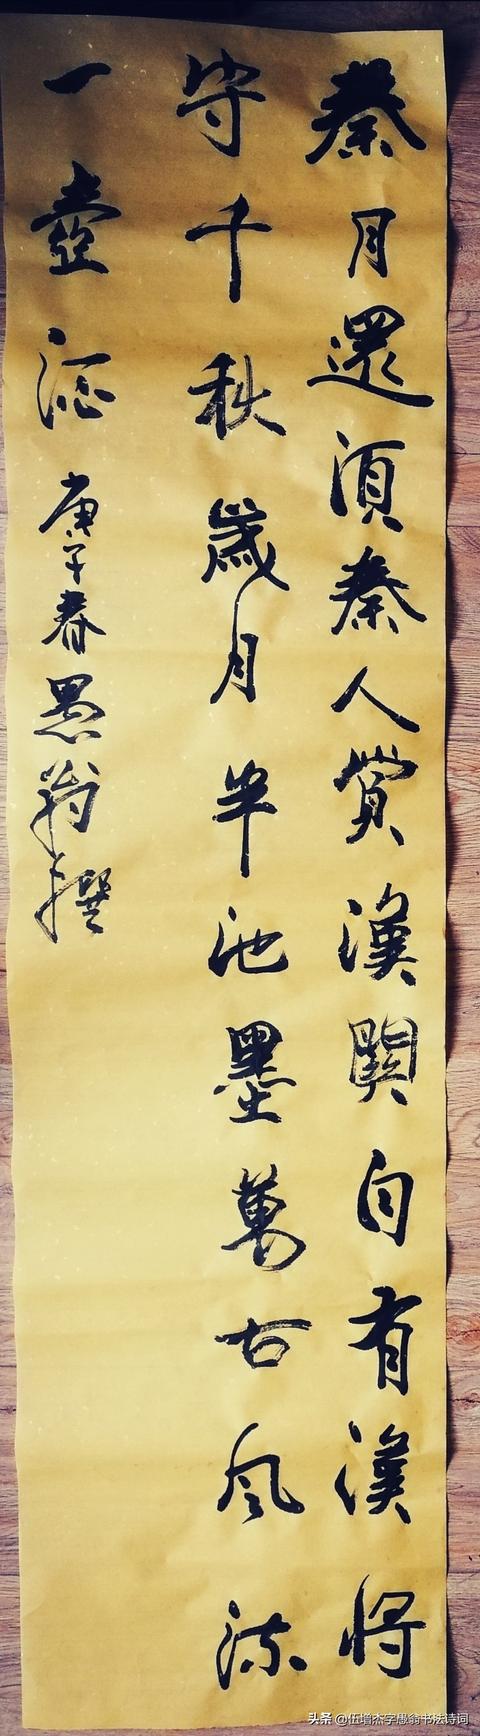 秦月還須秦人賞漢關自有漢將
守千秋歲月半池墨萬古風流
一壺酒庚子春愚翁撰
头条 @伍增杰字愚翁书法诗词